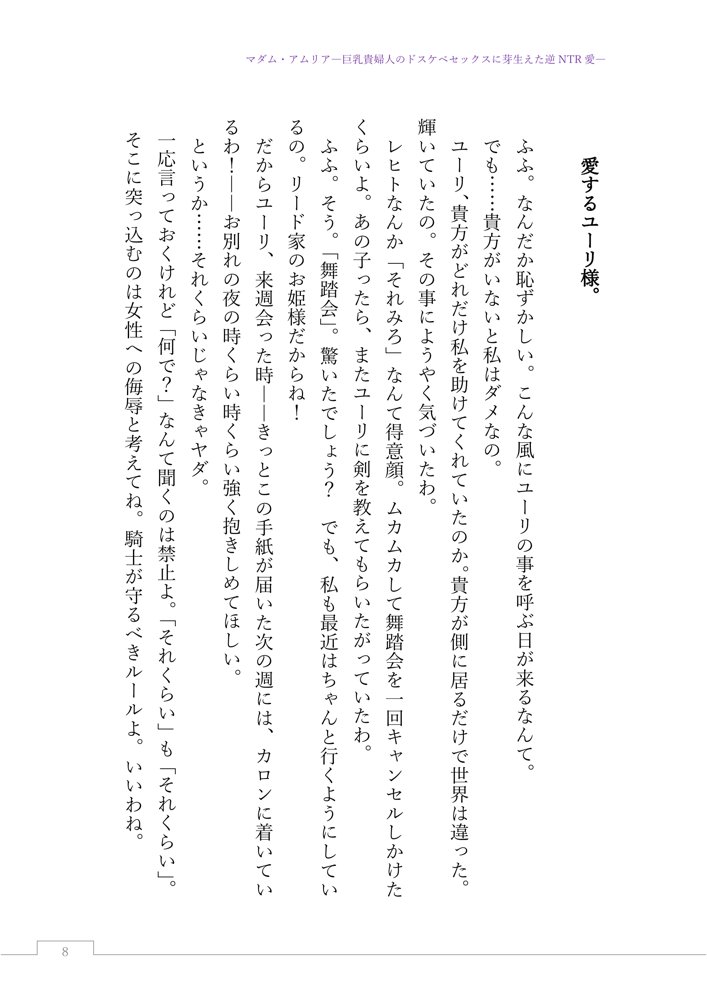 マダム・アムリア―巨乳貴婦人のドスケベセックスに芽生えた逆NTR愛―
愛するユーリ様。
ふふ。なんだか恥ずかしい。こんな風にユーリの事を呼ぶ日が来るなんて。
でも……貴方がいないと私はダメなの。
ユーリ、貴方がどれだけ私を助けてくれていたのか。貴方が側に居るだけで世界は違った。
輝いていたの。その事にようやく気づいたわ。
レヒトなんか「それみろ」なんて得意顔。ムカムカして舞踏会を一回キャンセルしかけた
くらいよ。あの子ったら、またユーリに剣を教えてもらいたがっていたわ。
ふふ。そう。「舞踏会」。驚いたでしょう？　でも、私も最近はちゃんと行くようにしてい
るの。リード家のお姫様だからね！
だからユーリ、来週会った時――きっとこの手紙が届いた次の週には、カロンに着いてい
るわ！――お別れの夜の時くらい時くらい強く抱きしめてほしい。
というか……それくらいじゃなきゃヤダ。
一応言っておくけれど「何で？」なんて聞くのは禁止よ。「それくらい」も「それくらい」。
そこに突っ込むのは女性への侮辱と考えてね。騎士が守るべきルールよ。いいわね。
8